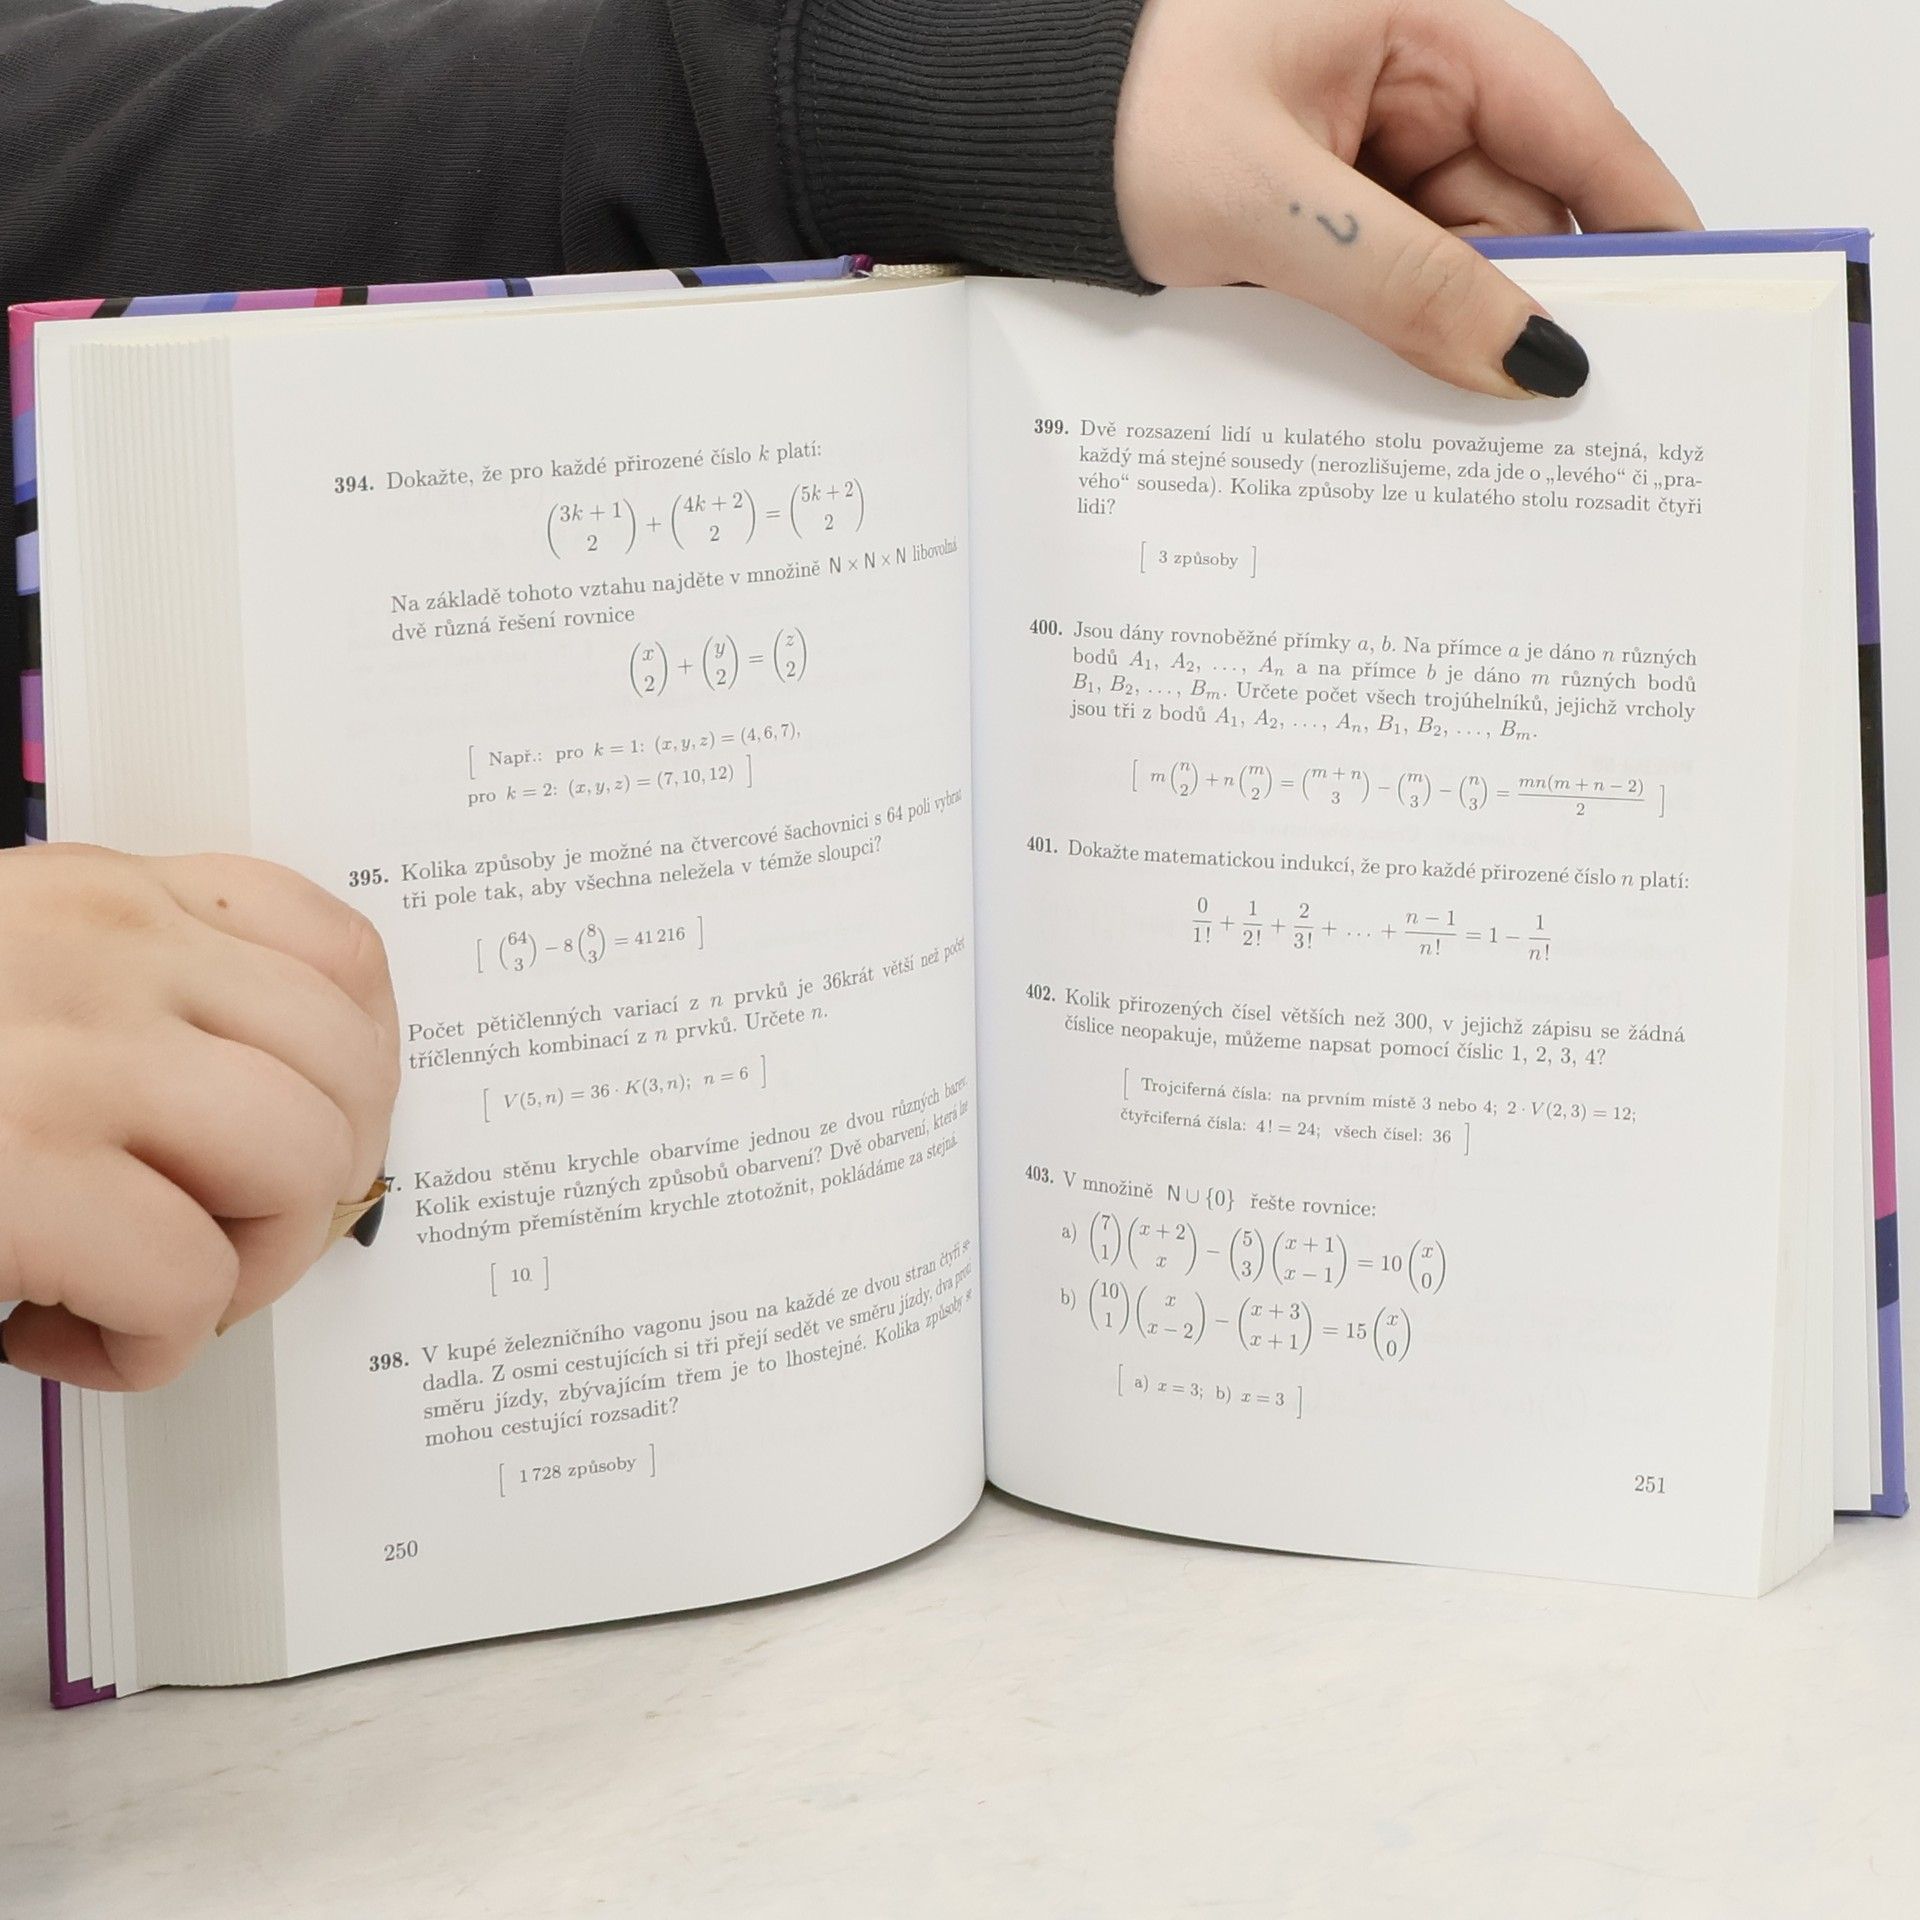 394. Dokažte, že pro každé přirozené číslo k platí:
(3k + 1 2) + (4k + 2 2) = (5k + 2 2)
Na základě tohoto vztahu najděte v množině N × N × N libovolná
dvě různá řešení rovnice
(x 2) + (y 2) = (z 2)
[ Např.: pro k = 1: (x, y, z) = (4, 6, 7),
pro k = 2: (x, y, z) = (7, 10, 12) ]
395. Kolika způsoby je možné na čtvercové šachovnici s 64 poli vybrat
tři pole tak, aby všechna neležela v témže sloupci?
[ (64 3) − 8 (8 3) = 41 216 ]
Počet pětičlenných variací z n prvků je 36krát větší než počet
tříčlenných kombinací z n prvků. Určete n.
[ V(5, n) = 36 · K(3, n); n = 6 ]
7. Každou stěnu krychle obarvíme jednou ze dvou různých barev.
Kolik existuje různých způsobů obarvení? Dvě obarvení, která lze
vhodným přemístěním krychle ztotožnit, pokládáme za stejná.
[ 10 ]
398. V kupé železničního vagonu jsou na každé ze dvou stran čtyři se
dadla. Z osmi cestujících si tři přejí sedět ve směru jízdy, dva proti
směru jízdy, zbývajícím třem je to lhostejné. Kolika způsoby se
mohou cestující rozsadit?
[ 1 728 způsoby ]
250
399. Dvě rozsazení lidí u kulatého stolu považujeme za stejná, když
každý má stejné sousedy (nerozlišujeme, zda jde o „levého“ či „pra-
vého“ souseda). Kolika způsoby lze u kulatého stolu rozsadit čtyři
lidi?
[ 3 způsoby ]
400. Jsou dány rovnoběžné přímky a, b. Na přímce a je dáno n různých
bodů A₁, A₂, ..., Aₙ a na přímce b je dáno m různých bodů
B₁, B₂, ..., Bₘ. Určete počet všech trojúhelníků, jejichž vrcholy
jsou tři z bodů A₁, A₂, ..., Aₙ, B₁, B₂, ..., Bₘ.
[ m (n 2) + n (m 2) = (m + n 3) − (m 3) − (n 3) = mn(m + n − 2) / 2 ]
401. Dokažte matematickou indukcí, že pro každé přirozené číslo n platí:
0/1! + 1/2! + 2/3! + ... + n − 1/n! = 1 − 1/n!
402. Kolik přirozených čísel větších než 300, v jejichž zápisu se žádná
číslice neopakuje, můžeme napsat pomocí číslic 1, 2, 3, 4?
[ Trojciferná čísla: na prvním místě 3 nebo 4; 2 · V(2, 3) = 12;
čtyřciferná čísla: 4! = 24; všech čísel: 36 ]
403. V množině N ∪ {0} řešte rovnice:
a) (7 1) (x + 2 x) − (5 3) (x + 1 x − 1) = 10 (x 0)
b) (10 1) (x x − 2) − (x + 3 x + 1) = 15 (x 0)
[ a) x = 3; b) x = 3 ]
251